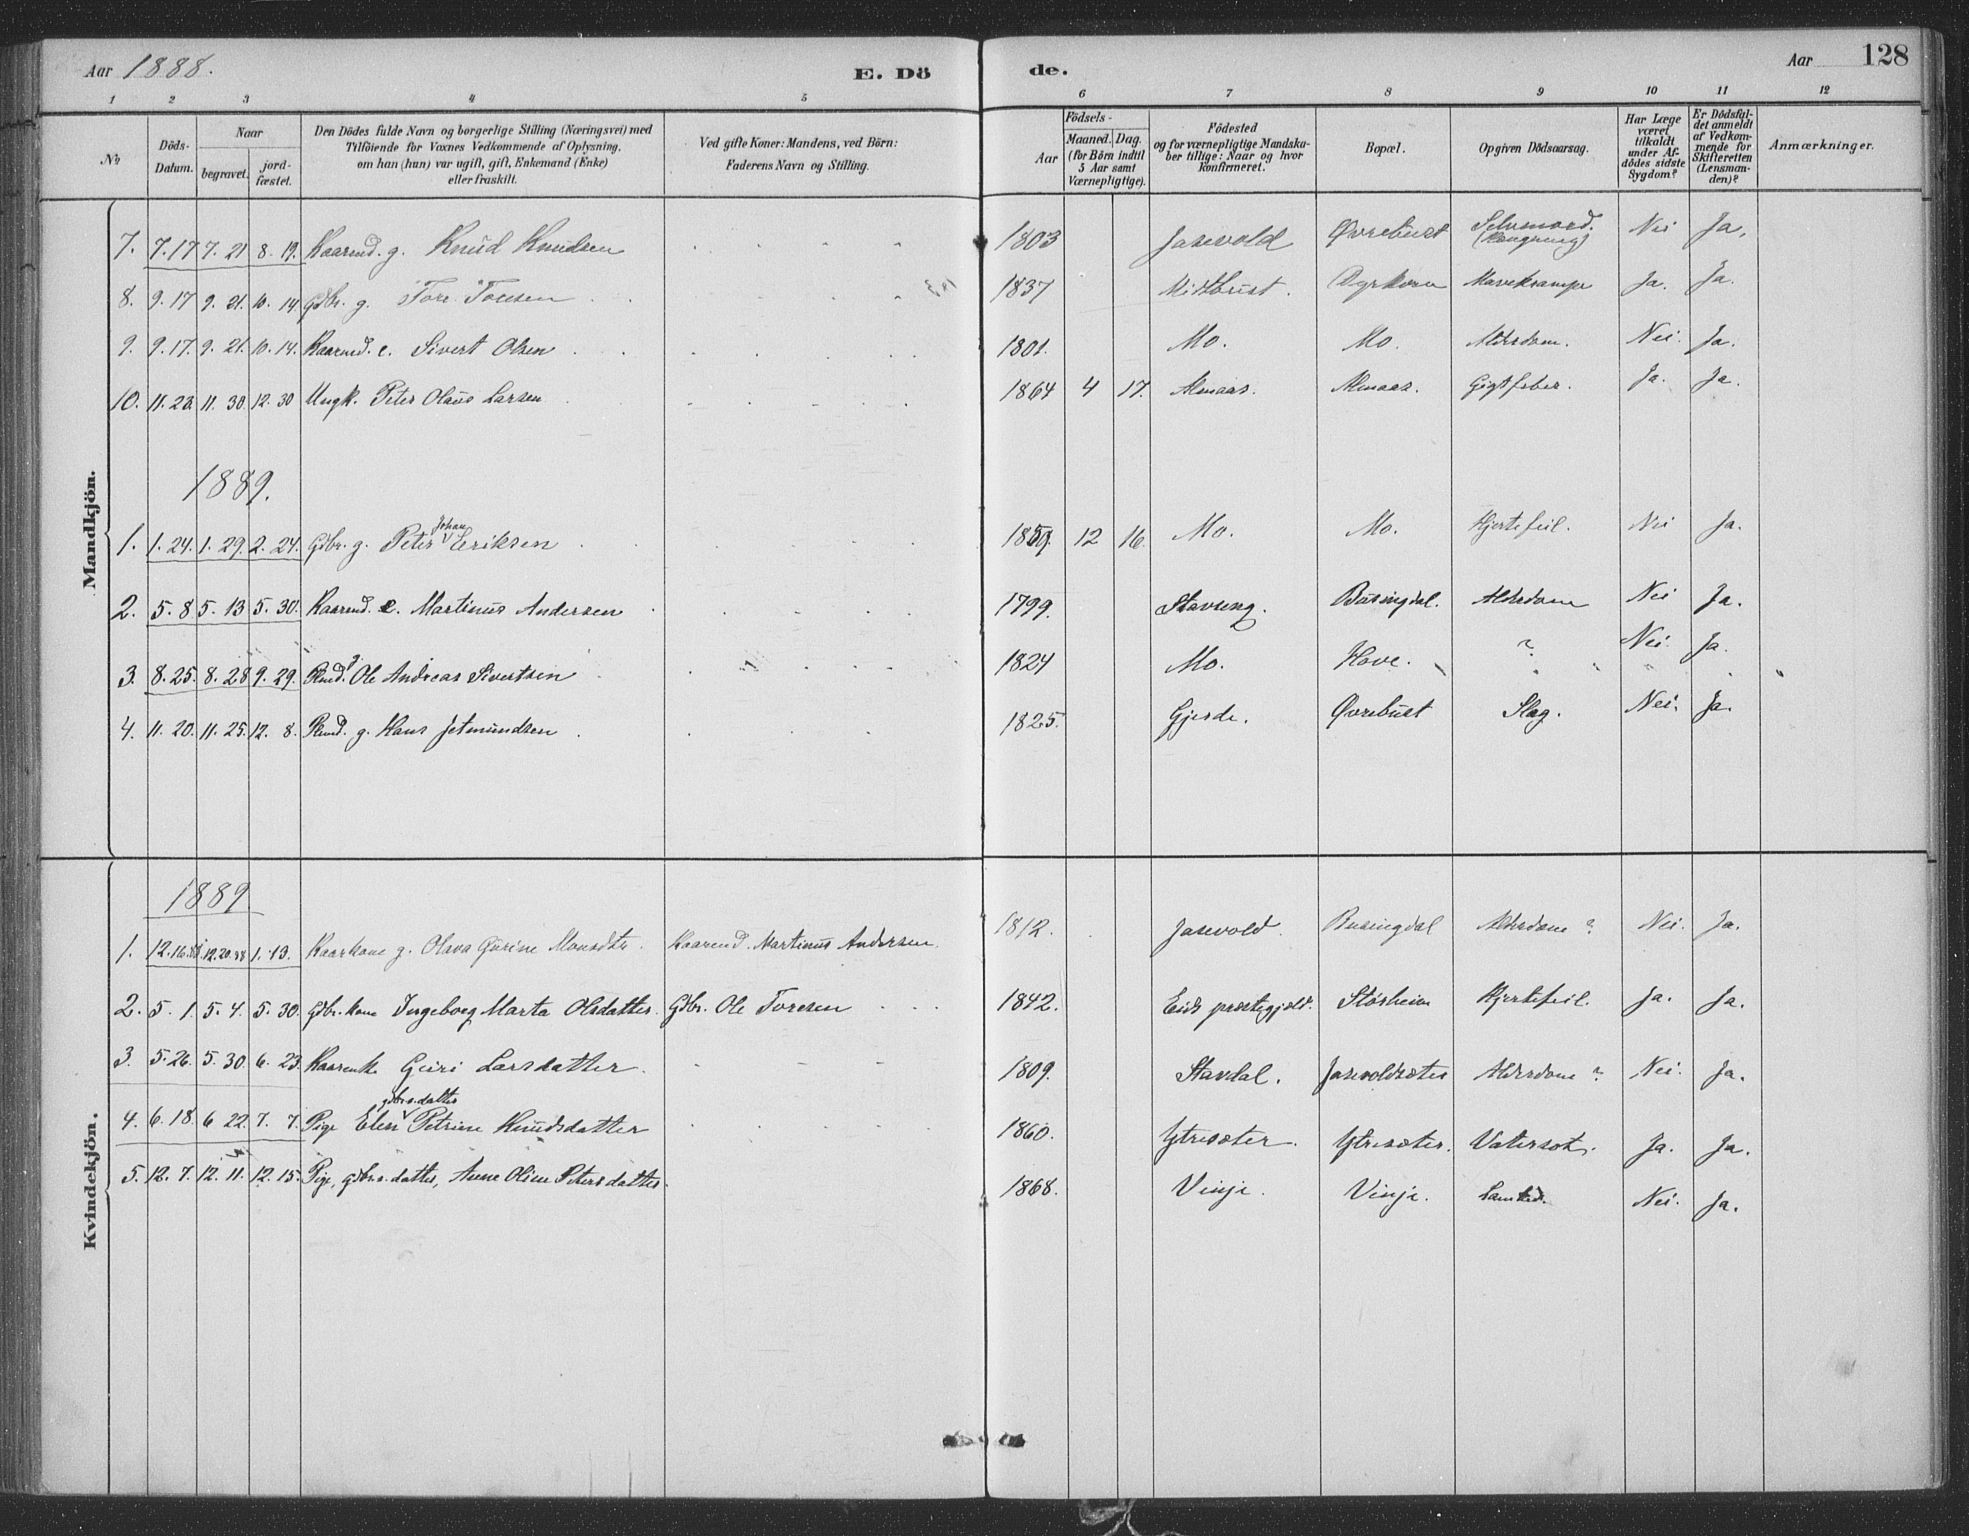 Aar 1888. E. Dö de. Aar 128
1 2 3 4 5 6 7 8 9 10 11 12
No
Döds-Datum.
Naar
begravet.
jord-fæstet.
Den Dödes fulde Navn og borgerlige Stilling (Næringsvei) med
Tilföiende for Voxnes Vedkommende af Oplysning,
om han (hun) var ugift, gift, Enkemand (Enke)
eller fraskilt.
Ved gifte Koner: Mandens, ved Börn:
Faderens Navn og Stilling.
Födsels-
Aar
Maaned. Dag.
(for Börn indtil
3 Aar samt
Værnepligtige).
Födested
og for værnepligtige Mandska-
ber tillige: Naar og hvor
konfirmeret.
Bopæl.
Opgiven Dödsaarsag.
Har Læge
været
tilkaldt
under Af-
dödes sidste
Sygdom?
Er Dödsfal-
det anmeldt
af Vedkom-
mende for
Skifteretten
(Lensman-
den)?
Anmærkninger.
Mandkjön.
7. 7.17 7. 21 8. 19. Kaarmd. g. Knud Knudsen 1803 Jasevold Øvrebust Selvmord. (Hængning) Nei Ja,
8. 9. 17 9. 21. 10. 14. Gdbr. g. Tore Toresen 1837 Midtbust. Dyrkorn Mavekrampe Ja. Ja.
9. 9. 17. 9. 21. 10. 14. Kaarmd. e. Sivert Olsen 1801. Mo. Mo. Alderdom. Nei. Ja.
10. 11. 23. 11. 30. 12. 30 Ungk. Peter Olaus Larsen 1864 4 17. Almaas. Almaas. Gigtfeber. Ja. Ja.
1889.
1. 1. 24. 1. 29. 2. 24. Gdbr. g. Peter Johan Eriksen 1859. 12 16. Mo. Mo. Hjertefeil. Nei Ja.
2. 5. 8 5. 13 5. 30. Kaarmd. e. Martinus Andersen 1799. Stavseng. Busingdal. Alderdom Nei Ja.
3. 8. 25. 8. 28 9. 29. Plmd. g Ole Andreas Sivertsen 1824 Mo. Hove. ? Nei. Ja.
4. 11. 20. 11. 25. 12. 8. Plmd. g. Hans Jetmundsen 1825. Gjerde. Øvrebust Slag. Nei. Ja.
Kvindekjön.
1889
1. 12. 16. 88 12. 20. 88 1. 13. Kaarkone g. Olava Gurine Monsdtr. Kaarmd. Martinus Andersen. 1812. Jasevold. Busingdal Alderdom ? Nei. Ja.
2. 5. 1. 5. 4. 5. 30. Gdbr. kone Ingeborg Marta Olsdatter. Gdbr. Ole Toresen 1842. Eids præstegjeld. Störheim Hjertefeil. Ja. Ja.
3 5. 26. 5. 30. 6. 23. Kaarenke Guri Larsdatter 1809. Stavdal. Jasevoldsæter Alderdom ? Nei. Ja.
gdbrs. datter
4. 6. 18. 6 22. 7. 7. Pige Elen Petrine Knudsdatter 1860. Ytresæter. Ytresæter. Vatersot. Ja. Ja.
5. 12. 7. 12. 11. 12. 15. Pige, gdbrs. datter, Anne Oline Petersdatter. 1868. Vinje. Vinje. Nei. Ja.